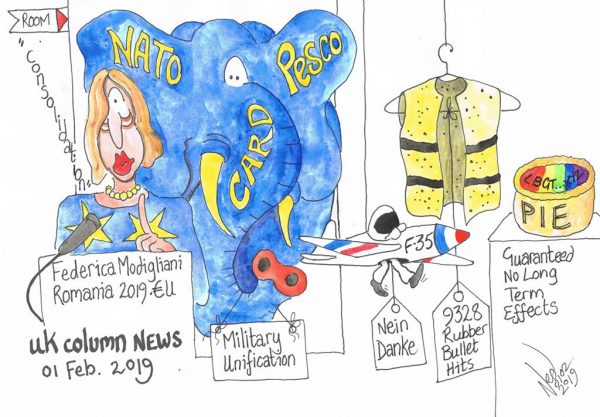 ROOM
"Consolidation"
NATO
Pesco
CARD
F-35
LBGT...
PIE
Federica Modigliani
Romania 2019 EU
UK COLUMN NEWS
01 Feb. 2019
Military
Unification
Nein
Danke
9328
Rubber
Bullet
Hits
Guaranteed
No Long
Term
Effects
2019